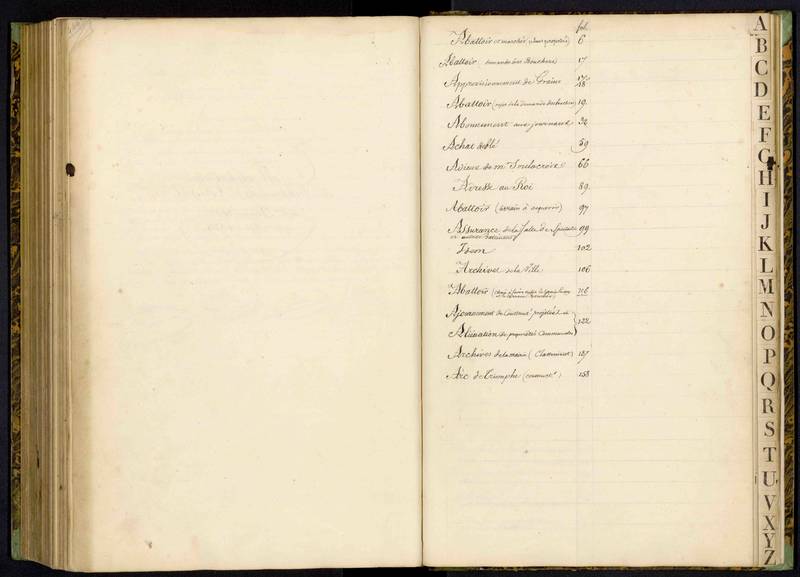 fol.
Abattoir et marchés 6
Abattoir (demande des Bouchers) 17
Approvisionnement de Grains 17 18
Abattoir (rejet de la demande des bouchers) 19
Abonnement aux journaux 32
Achat de blé 59
Adieux de Mr. 66
Adresse au Roi 89
Abattoir (terrain à acquérir) 97
Assurance de la Salle de Spectacle 99
et autres bâtiments
Idem 102
Archives de la Ville 106
Abattoir 116
Ajournement de projetées et
Aliénation de propriétés Communales 122
Archives de la mairie (Classement) 157
Arc de Triomphe (construct.) 158
A
B
C
D
E
F
G
H
I
J
K
L
M
N
O
P
Q
R
S
T
U
V
X
Y
Z